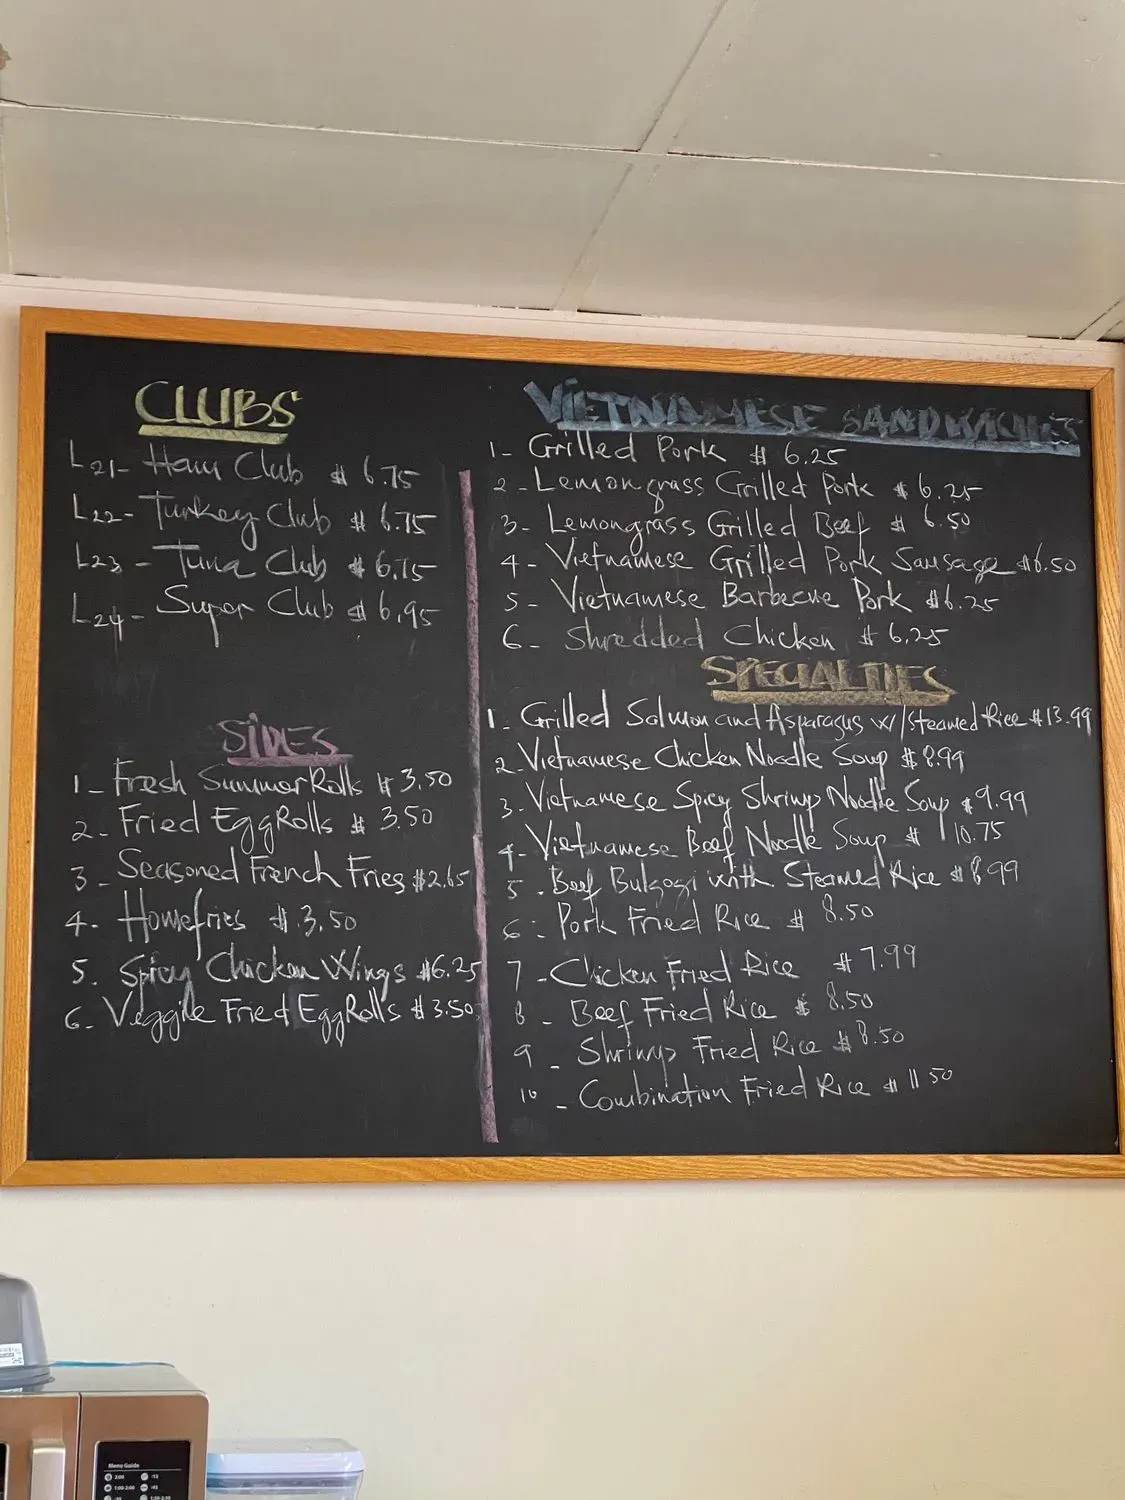 CLUBS
L21- Ham Club $ 6.75
L22- Turkey Club $ 6.75
L23- Tuna Club $ 6.75
L24- Super Club $ 6.95
SIDES
1- Fresh Summer Rolls $ 3.50
2- Fried EggRolls $ 3.50
3- Seasoned French Fries $2.65
4- Homefries $ 3.50
5. Spicy Chicken Wings $6.25
6- Veggie Fried EggRolls $ 3.50
VIETNAMESE SANDWICHES
1- Grilled Pork $ 6.25
2- Lemongrass Grilled Pork $ 6.25
3- Lemongrass Grilled Beef $ 6.50
4- Vietnamese Grilled Pork Sausage $6.50
5- Vietnamese Barbecue Pork $6.25
6- Shredded Chicken $ 6.25
SPECIALTIES
1- Grilled Salmon and Asparagus w/ Steamed Rice $ 13.99
2- Vietnamese Chicken Noodle Soup $ 8.99
3- Vietnamese Spicy Shrimp Noodle Soup $ 9.99
4- Vietnamese Beef Noodle Soup $ 10.75
5. Beef Bulgogi with Steamed Rice $ 8.99
6- Pork Fried Rice $ 8.50
7- Chicken Fried Rice $ 7.99
8- Beef Fried Rice $ 8.50
9- Shrimp Fried Rice $ 8.50
10- Combination Fried Rice $ 11.50
Menu Guide
2:00
1:00-2:00